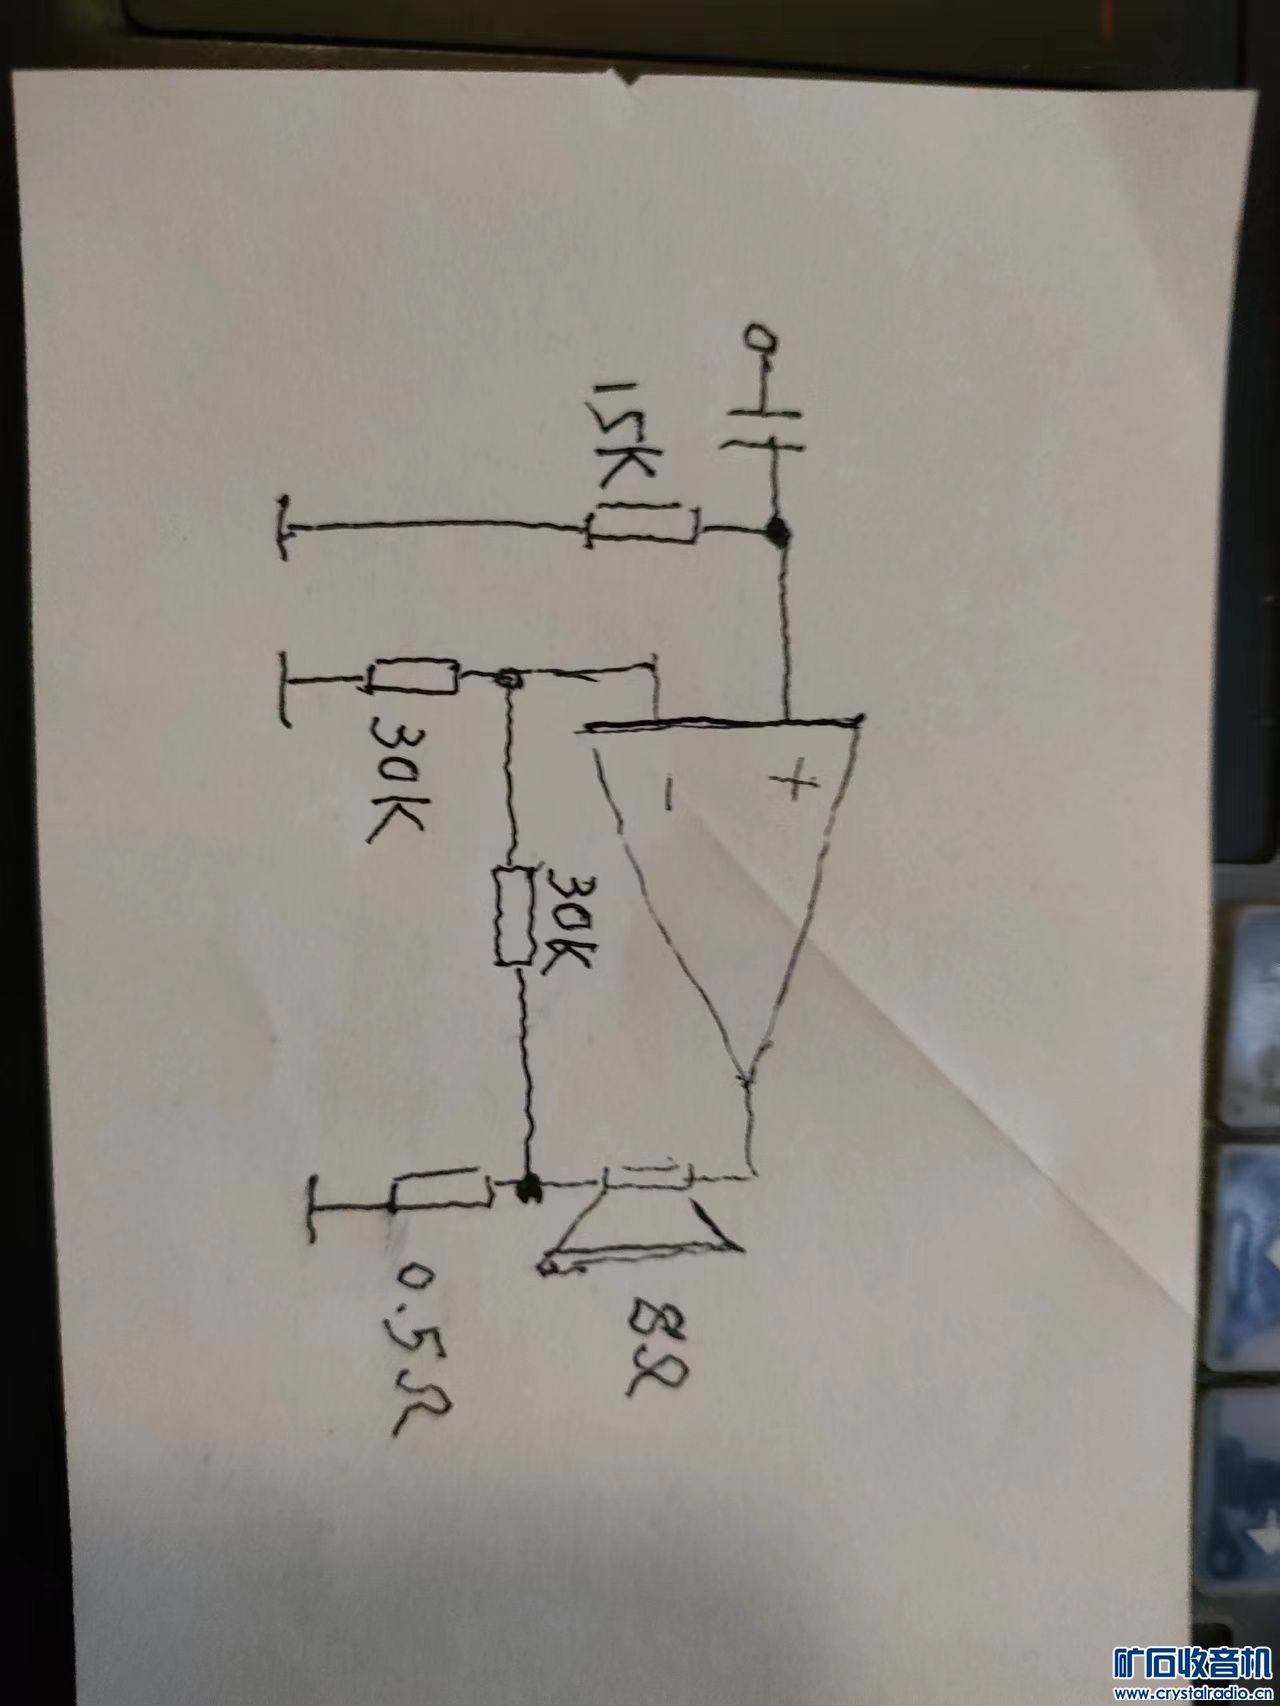 15K
+
-
30K
30K
8Ω
0.5Ω
矿石收音机
www.crystalradio.cn